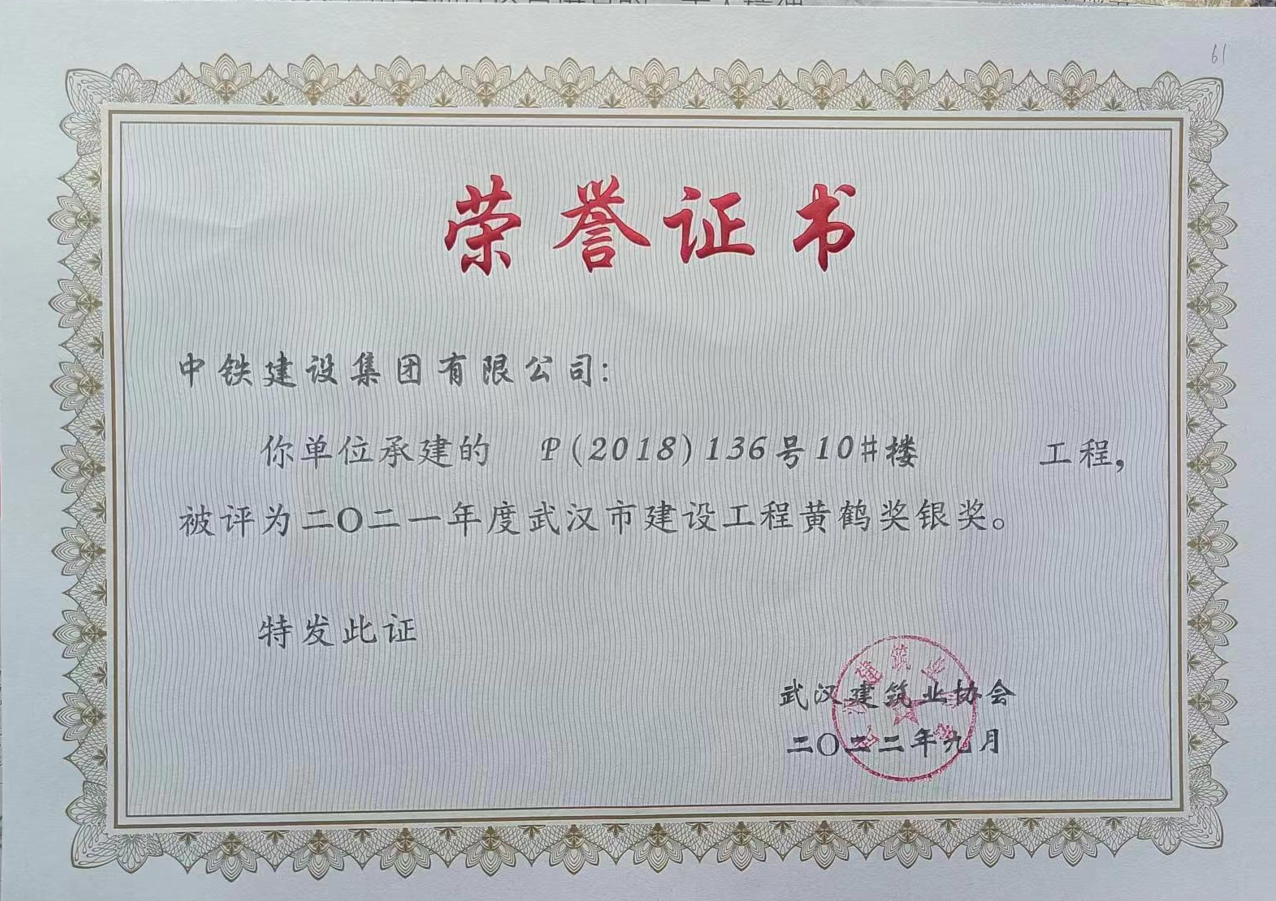 61
荣誉证书
中铁建设集团有限公司:
你单位承建的 P(2018)136号10#楼 工程,
被评为二〇二一年度武汉市建设工程黄鹤奖银奖。
特发此证
武汉建筑业协会
二〇二二年九月